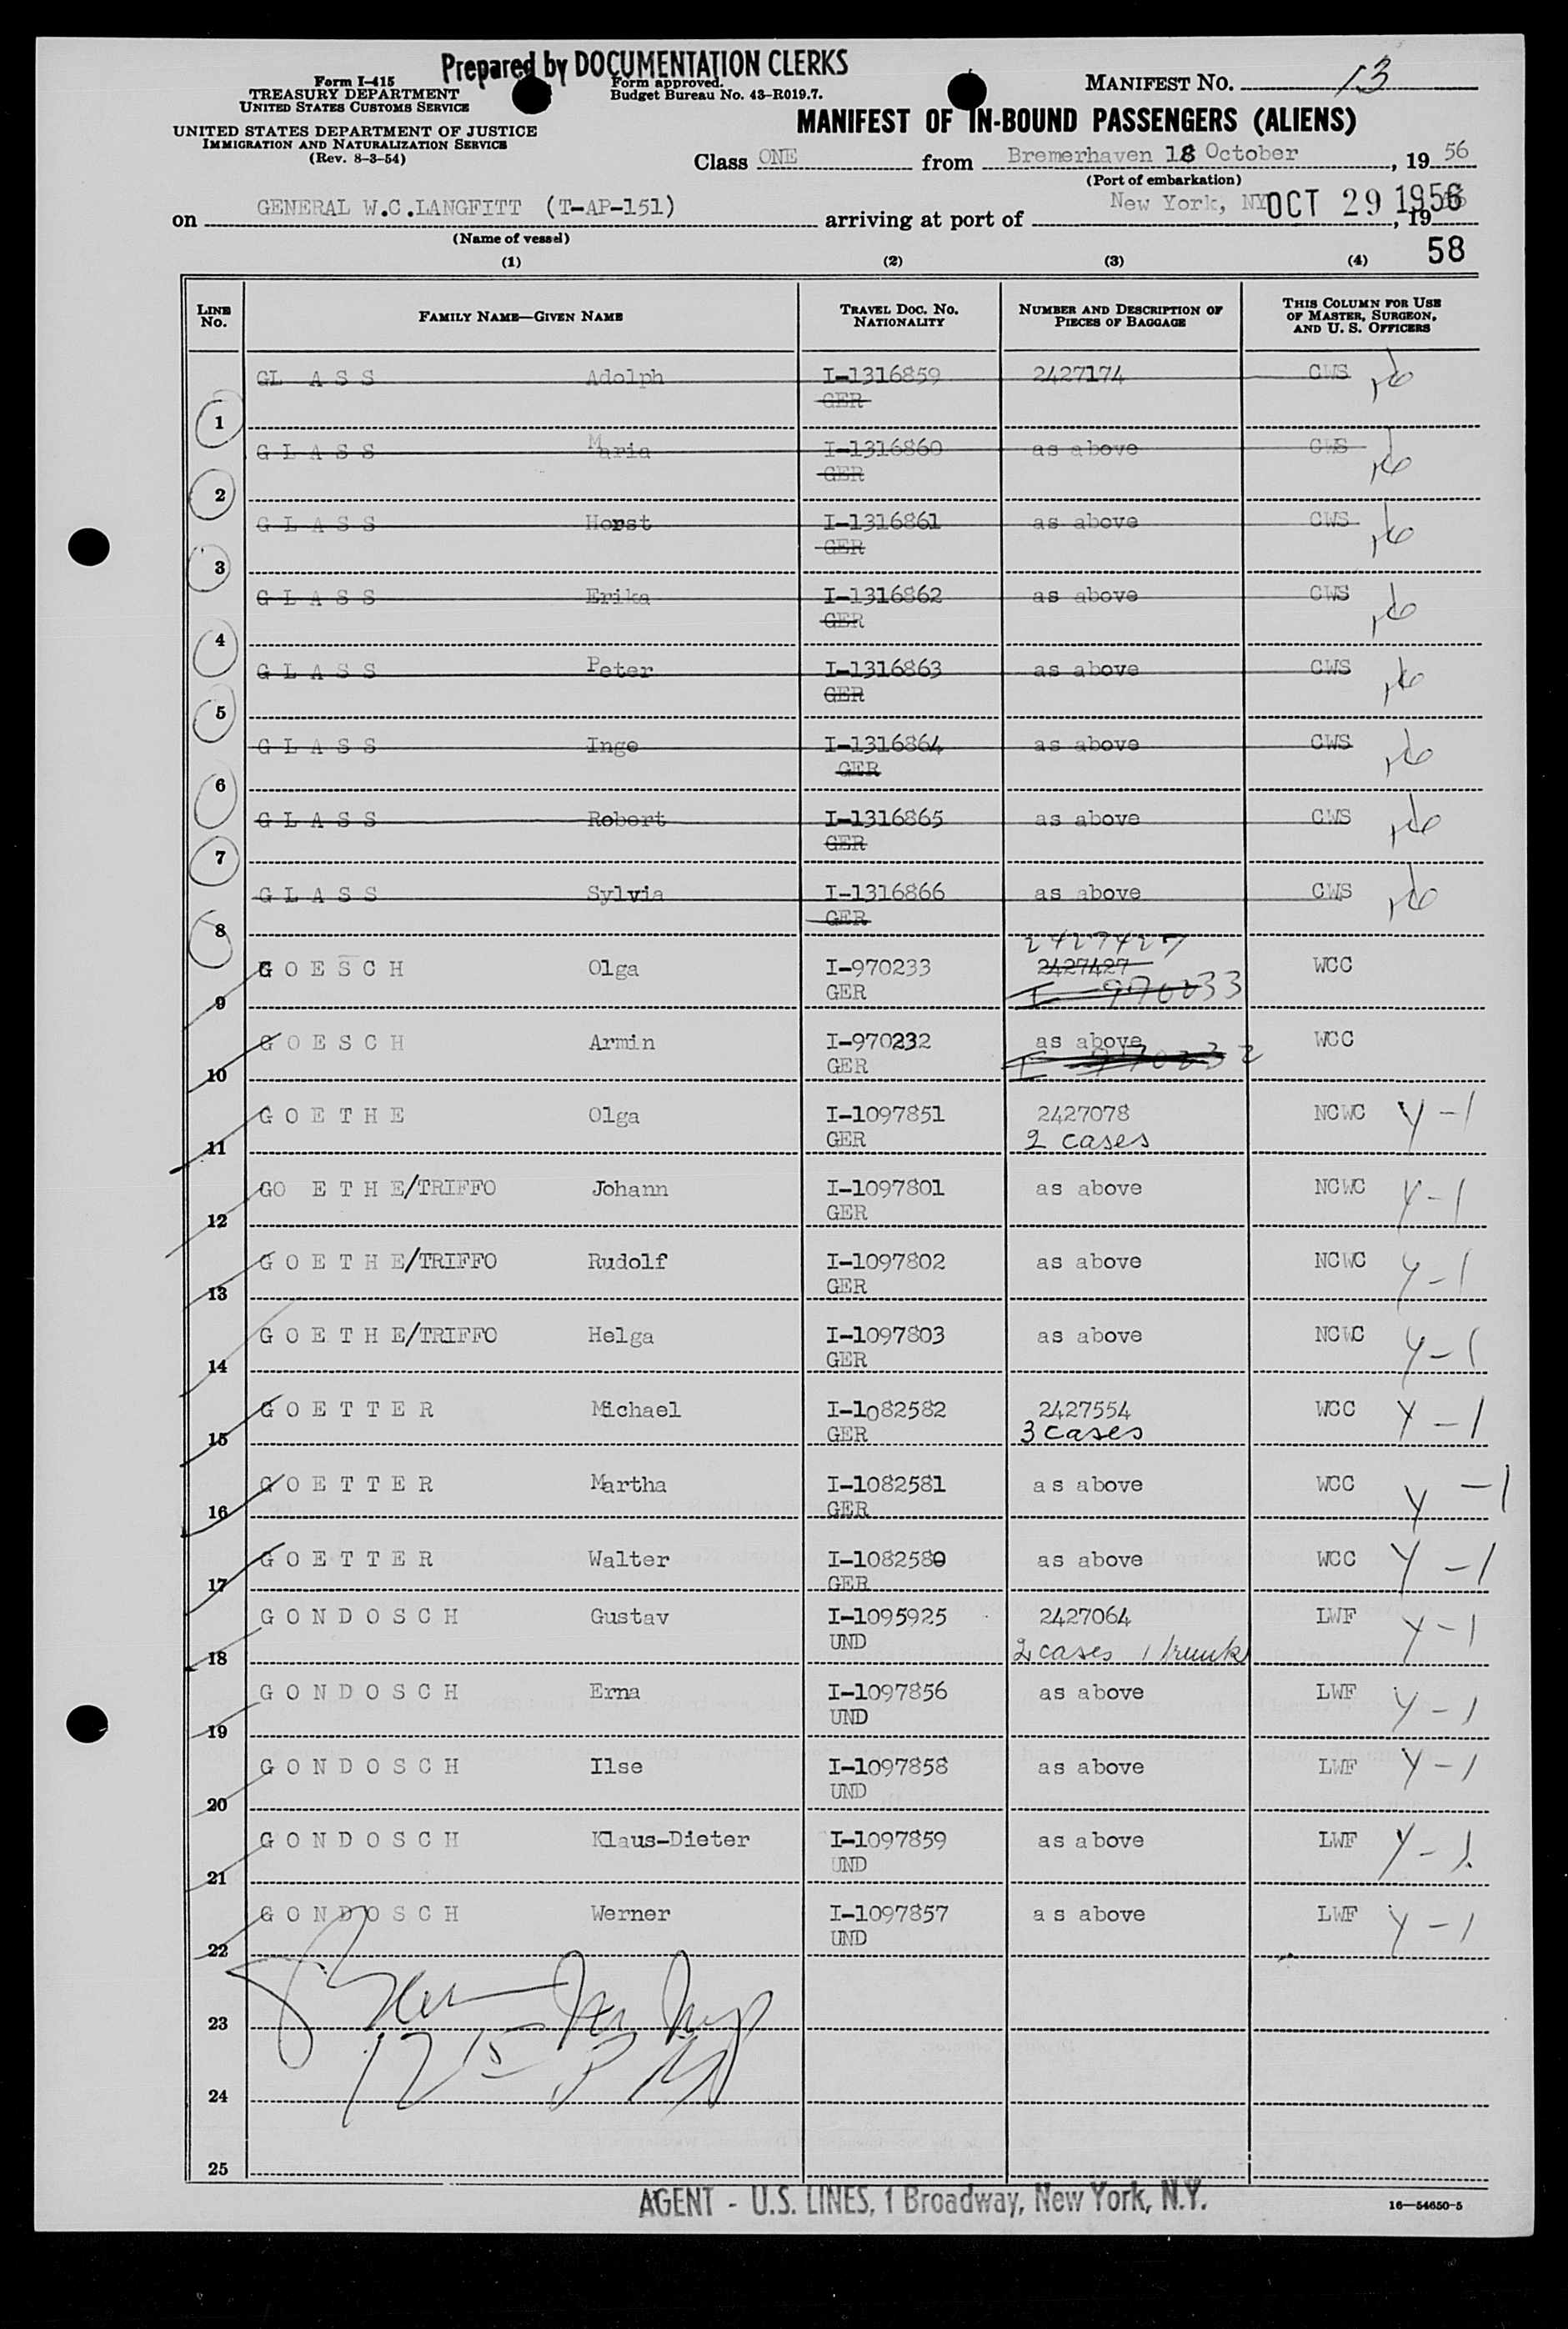 Prepared by DOCUMENTATION CLERKS
Form I-415
TREASURY DEPARTMENT
UNITED STATES CUSTOMS SERVICE
Form approved.
Budget Bureau No. 43-R019.7.
MANIFEST NO. 13
UNITED STATES DEPARTMENT OF JUSTICE
IMMIGRATION AND NATURALIZATION SERVICE
(Rev. 8-3-54)
MANIFEST OF IN-BOUND PASSENGERS (ALIENS)
Class ONE from Bremerhaven 18 October, 19 56
(Port of embarkation)
on GENERAL W.C.LANGFITT (T-AP-151) arriving at port of New York, NY OCT 29 1956, 19
(Name of vessel)
58
(1) (2) (3) (4)
LINE NO. FAMILY NAME—GIVEN NAME TRAVEL DOC. NO. NATIONALITY NUMBER AND DESCRIPTION OF PIECES OF BAGGAGE THIS COLUMN FOR USE OF MASTER, SURGEON, AND U. S. OFFICERS
GL A S S Adolph I-1316859 2427174 CWS
GER
1
G L A S S Maria I-1316860 as above CWS
GER
2
G L A S S Horst I-1316861 as above CWS
GER
3
G L A S S Erika I-1316862 as above CWS
GER
4
G L A S S Peter I-1316863 as above CWS
GER
5
G L A S S Inge I-1316864 as above CWS
GER
6
G L A S S Robert I-1316865 as above CWS
GER
7
G L A S S Sylvia I-1316866 as above CWS
GER
8
2427427
G O E S C H Olga I-970233 2427427 WCC
GER I-970233
9
G O E S C H Armin I-970232 as above WCC
GER I 970232
10
G O E T H E Olga I-1097851 2427078 NCWC Y-1
GER 2 cases
11
GO E T H E/TRIFFO Johann I-1097801 as above NCWC Y-1
GER
12
G O E T H E/TRIFFO Rudolf I-1097802 as above NCWC Y-1
GER
13
G O E T H E/TRIFFO Helga I-1097803 as above NCWC Y-1
GER
14
G O E T T E R Michael I-1082582 2427554 WCC Y-1
GER 3 cases
15
G O E T T E R Martha I-1082581 as above WCC Y-1
GER
16
G O E T T E R Walter I-1082580 as above WCC Y-1
GER
17
G O N D O S C H Gustav I-1095925 2427064 LWF Y-1
UND 2 cases 1 trunk
18
G O N D O S C H Erna I-1097856 as above LWF Y-1
UND
19
G O N D O S C H Ilse I-1097858 as above LWF Y-1
UND
20
G O N D O S C H Klaus-Dieter I-1097859 as above LWF Y-1
UND
21
G O N D O S C H Werner I-1097857 as above LWF Y-1
UND
22
23
12 15 P M
24
25
AGENT - U.S. LINES, 1 Broadway, New York, N.Y.
16—54650-5